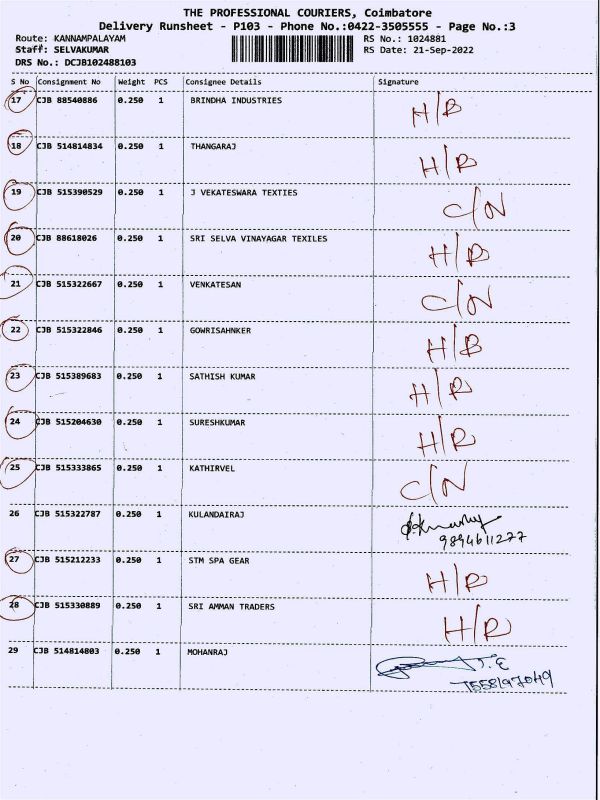 THE PROFESSIONAL COURIERS, Coimbatore
Delivery Runsheet - P103 - Phone No.:0422-3505555 - Page No.:3
Route: KANNAMPALAYAM RS No.: 1024881
Staff: SELVAKUMAR RS Date: 21-Sep-2022
DRS No.: DCJB102488103
S No Consignment No Weight PCS Consignee Details Signature
17 CJB 88540886 0.250 1 BRINDHA INDUSTRIES H/B
18 CJB 514814834 0.250 1 THANGARAJ H/R
19 CJB 515390529 0.250 1 J VEKATESWARA TEXTIES C/N
20 CJB 88618026 0.250 1 SRI SELVA VINAYAGAR TEXILES H/R
21 CJB 515322667 0.250 1 VENKATESAN C/N
22 CJB 515322846 0.250 1 GOWRISAHNKER H/B
23 CJB 515389683 0.250 1 SATHISH KUMAR H/R
24 CJB 515204630 0.250 1 SURESHKUMAR H/R
25 CJB 515333865 0.250 1 KATHIRVEL C/N
26 CJB 515322787 0.250 1 KULANDAIRAJ
9894611277
27 CJB 515212233 0.250 1 STM SPA GEAR H/R
28 CJB 515330889 0.250 1 SRI AMMAN TRADERS H/R
29 CJB 514814803 0.250 1 MOHANRAJ
7558197049